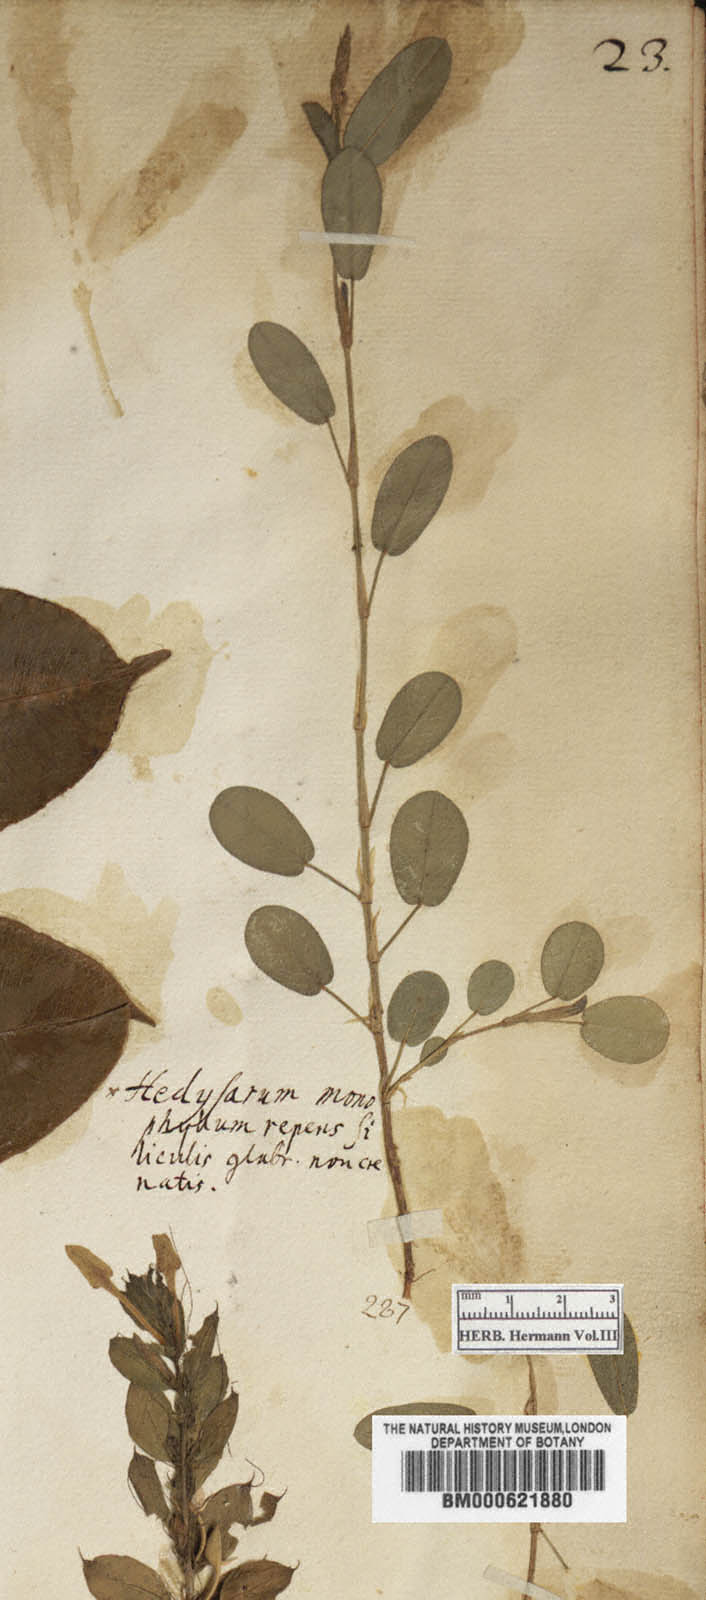 23.
* Hedysarum mono
phyllum repens si
liculis glabr. non cre
natis.
287
mm 1 2 3
HERB. Hermann Vol.III
THE NATURAL HISTORY MUSEUM,LONDON
DEPARTMENT OF BOTANY
BM000621880